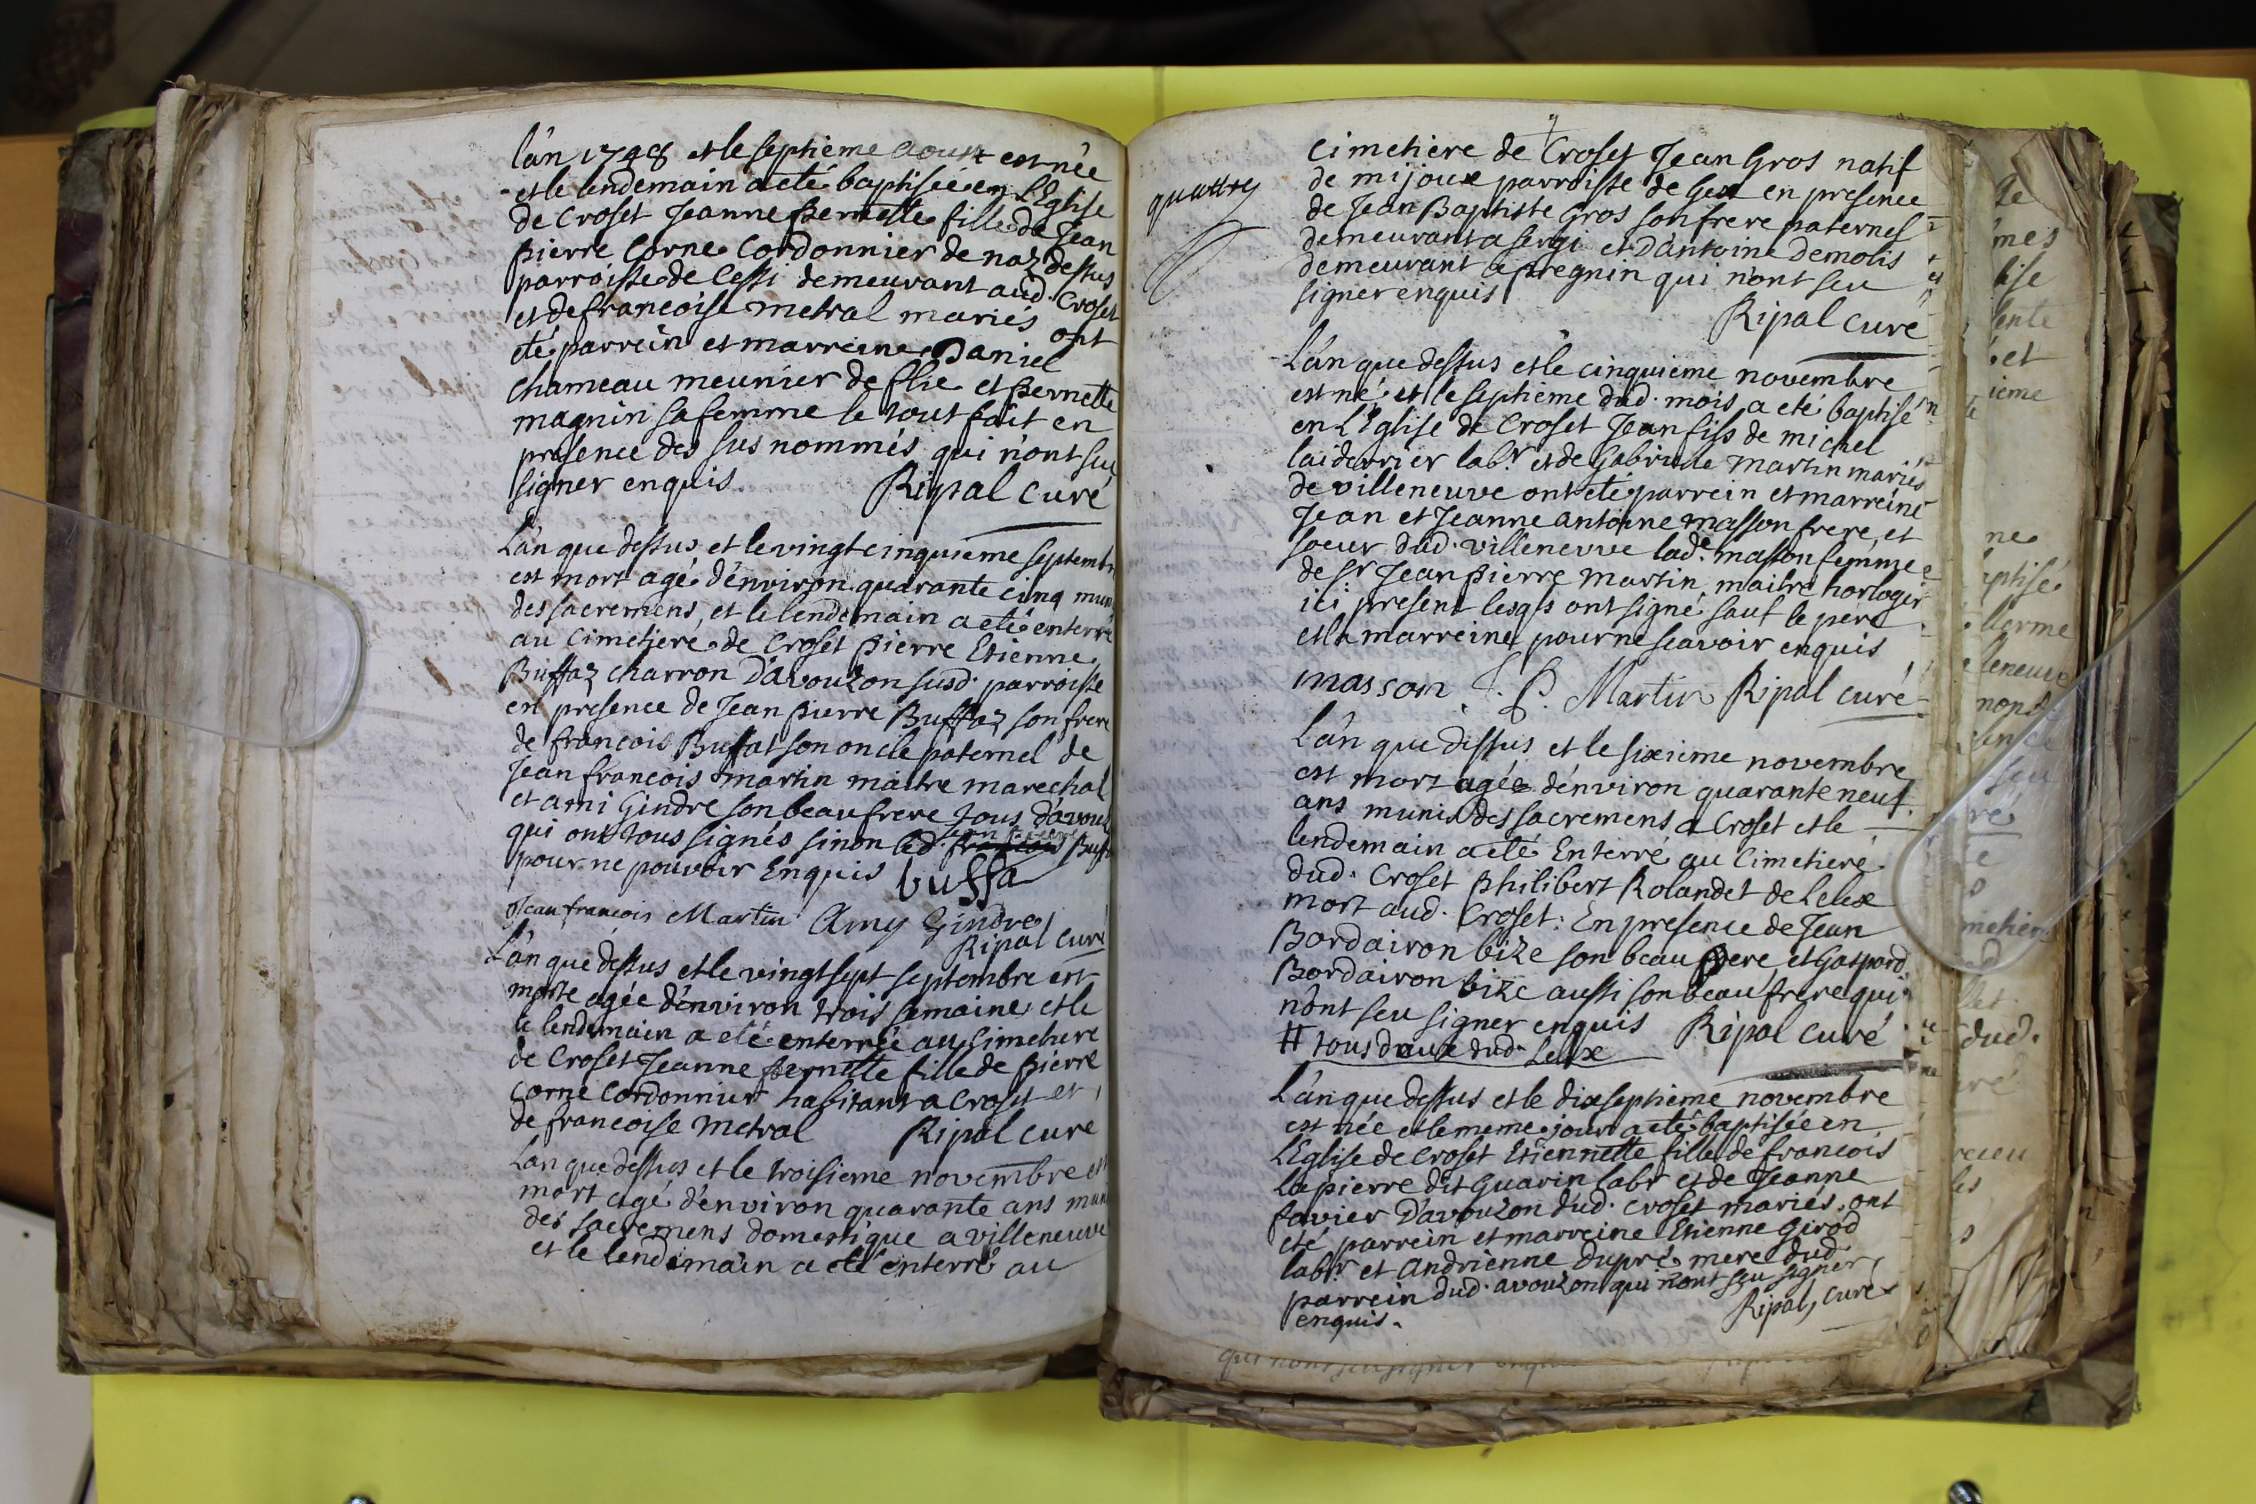 l'an 1748 et le septieme aoust est née
et le lendemain a eté baptisée en L'Eglise
de Croset Jeanne Pernette fille de Jean
pierre Corne Cordonnier de naz dessus
parroisse de Cessi demeurant aud. Croset
et de francoise metral mariés ont
eté parrein et marreine Daniel
Chameau meunier de flie et Pernette
magnin sa femme le tout fait en
présence des sus nommés qui n'ont seu
signer enquis. Ripal curé
L'an que dessus et le vingt cinquieme septembr
est mort agé d'environ quarante cinq muni
des sacremens, et le lendemain a eté enterré
au Cimetiere de Croset pierre Etienne
Buffaz charron D'avouzon susd. parroisse
en presence de Jean pierre Buffaz son frere
de francois Buffat son oncle paternel de
Jean francois martin maitre marechal
et ami Gindre son beau frere tous d'avouz
qui ont tous signés sinon led. francois Jean pierre Buff
pour ne pouvoir Enquis buffa
Jean francois Martin Amy Gindre
Ripal curé
L'an que dessus et le vingt sept septembre est
morte agée d'environ trois semaine et le
le lendemain a eté enterrée au Cimetiere
de Croset Jeanne Pernette fille de pierre
Corne Cordonnier habitant a Croset et
de francoise Metral Ripal curé
L'an que dessus et le troisieme novembre est
mort agé d'environ quarante ans muni
des sacremens domestique a villeneuve
et le lendemain a eté enterré au
Cimetiere de Croset Jean Gros natif
de mijoux parroisse de Gex en presence
quattry
de Jean Baptiste Gros son frere paternel
demeurant a sergi et D'antoine demolis
demeurant a pregnin qui n'ont seu
signer enquis
Ripal curé
L'an que dessus et le cinquieme novembre
est né et le septieme dud. mois a eté baptisé
en L'Eglise de Croset Jean fils de michel
laiderrier labr. et de Gabrielle martin mariés
de villeneuve ont eté parrein et marreine
Jean et Jeanne antoine masson frere et
soeur dud. villeneuve lade. masson femme
de Sr. Jean pierre martin maitre horloger
ici present lesqls ont signé sauf le pere
et la marreine pour ne scavoir enquis
masson J. P. Martin Ripal curé
L'an que dessus et le sixieme novembre
est mort agée d'environ quarante neuf
ans munis des sacremens a Croset et le
lendemain a eté Enterré au Cimetiere
dud. Croset philibert Rolandet de Lelex
mort aud. Croset: En presence de Jean
Bordairon bize son beau pere, et Gaspard
Bordairon bize aussi son beau frere qui
n'ont seu signer enquis Ripal curé
# tous deux dud. Lelex
L'an que dessus et le dixseptieme novembre
est née et le meme jour a eté baptisée en
L'Eglise de Croset Etiennette fille de francois
Lapierre dit Guarin labr et de Jeanne
favier D'avouzon dud. Croset mariés. ont
eté parrein et marreine Etienne Girod
labr. et Andrienne Dupré mere dud.
parrein dud. avouzon qui n'ont seu signer
enquis. Ripal, curé